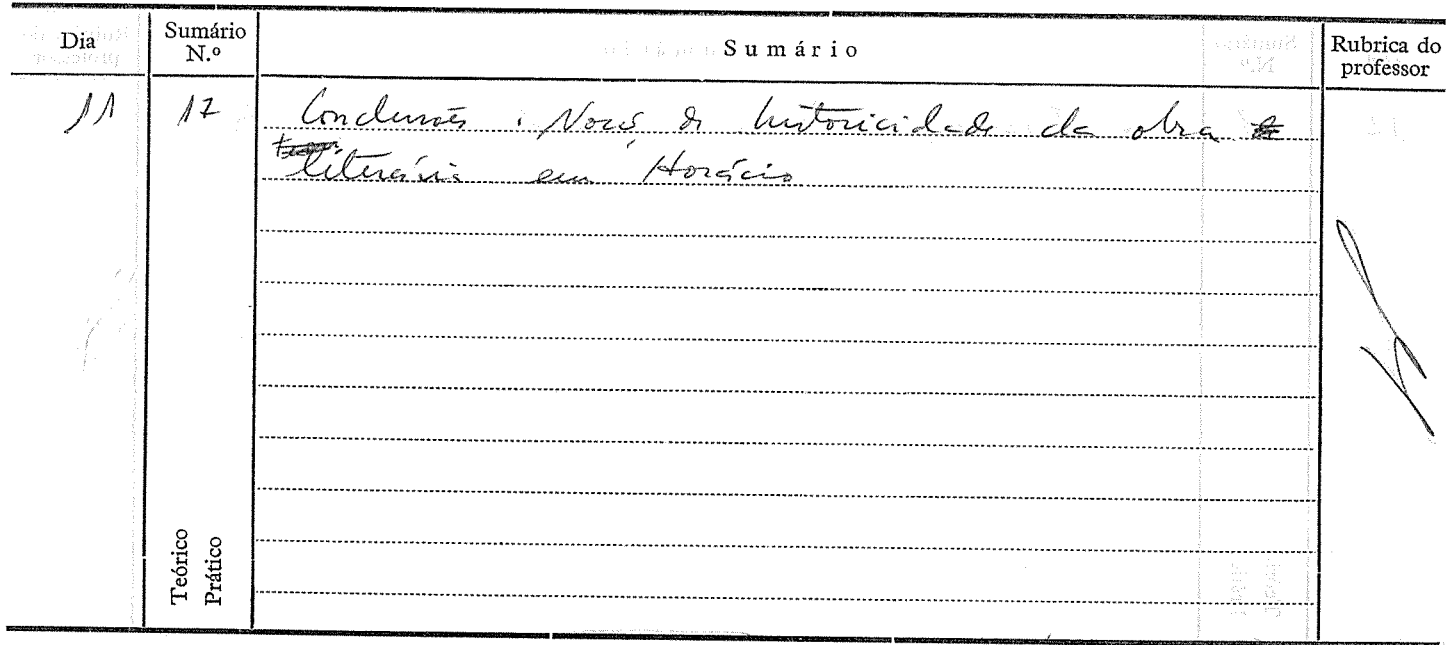 Dia Sumário N.º Sumário Rubrica do professor
11 17 Conclusões. Noção de historicidade da obra
literária em Horácio
Teórico
Prático